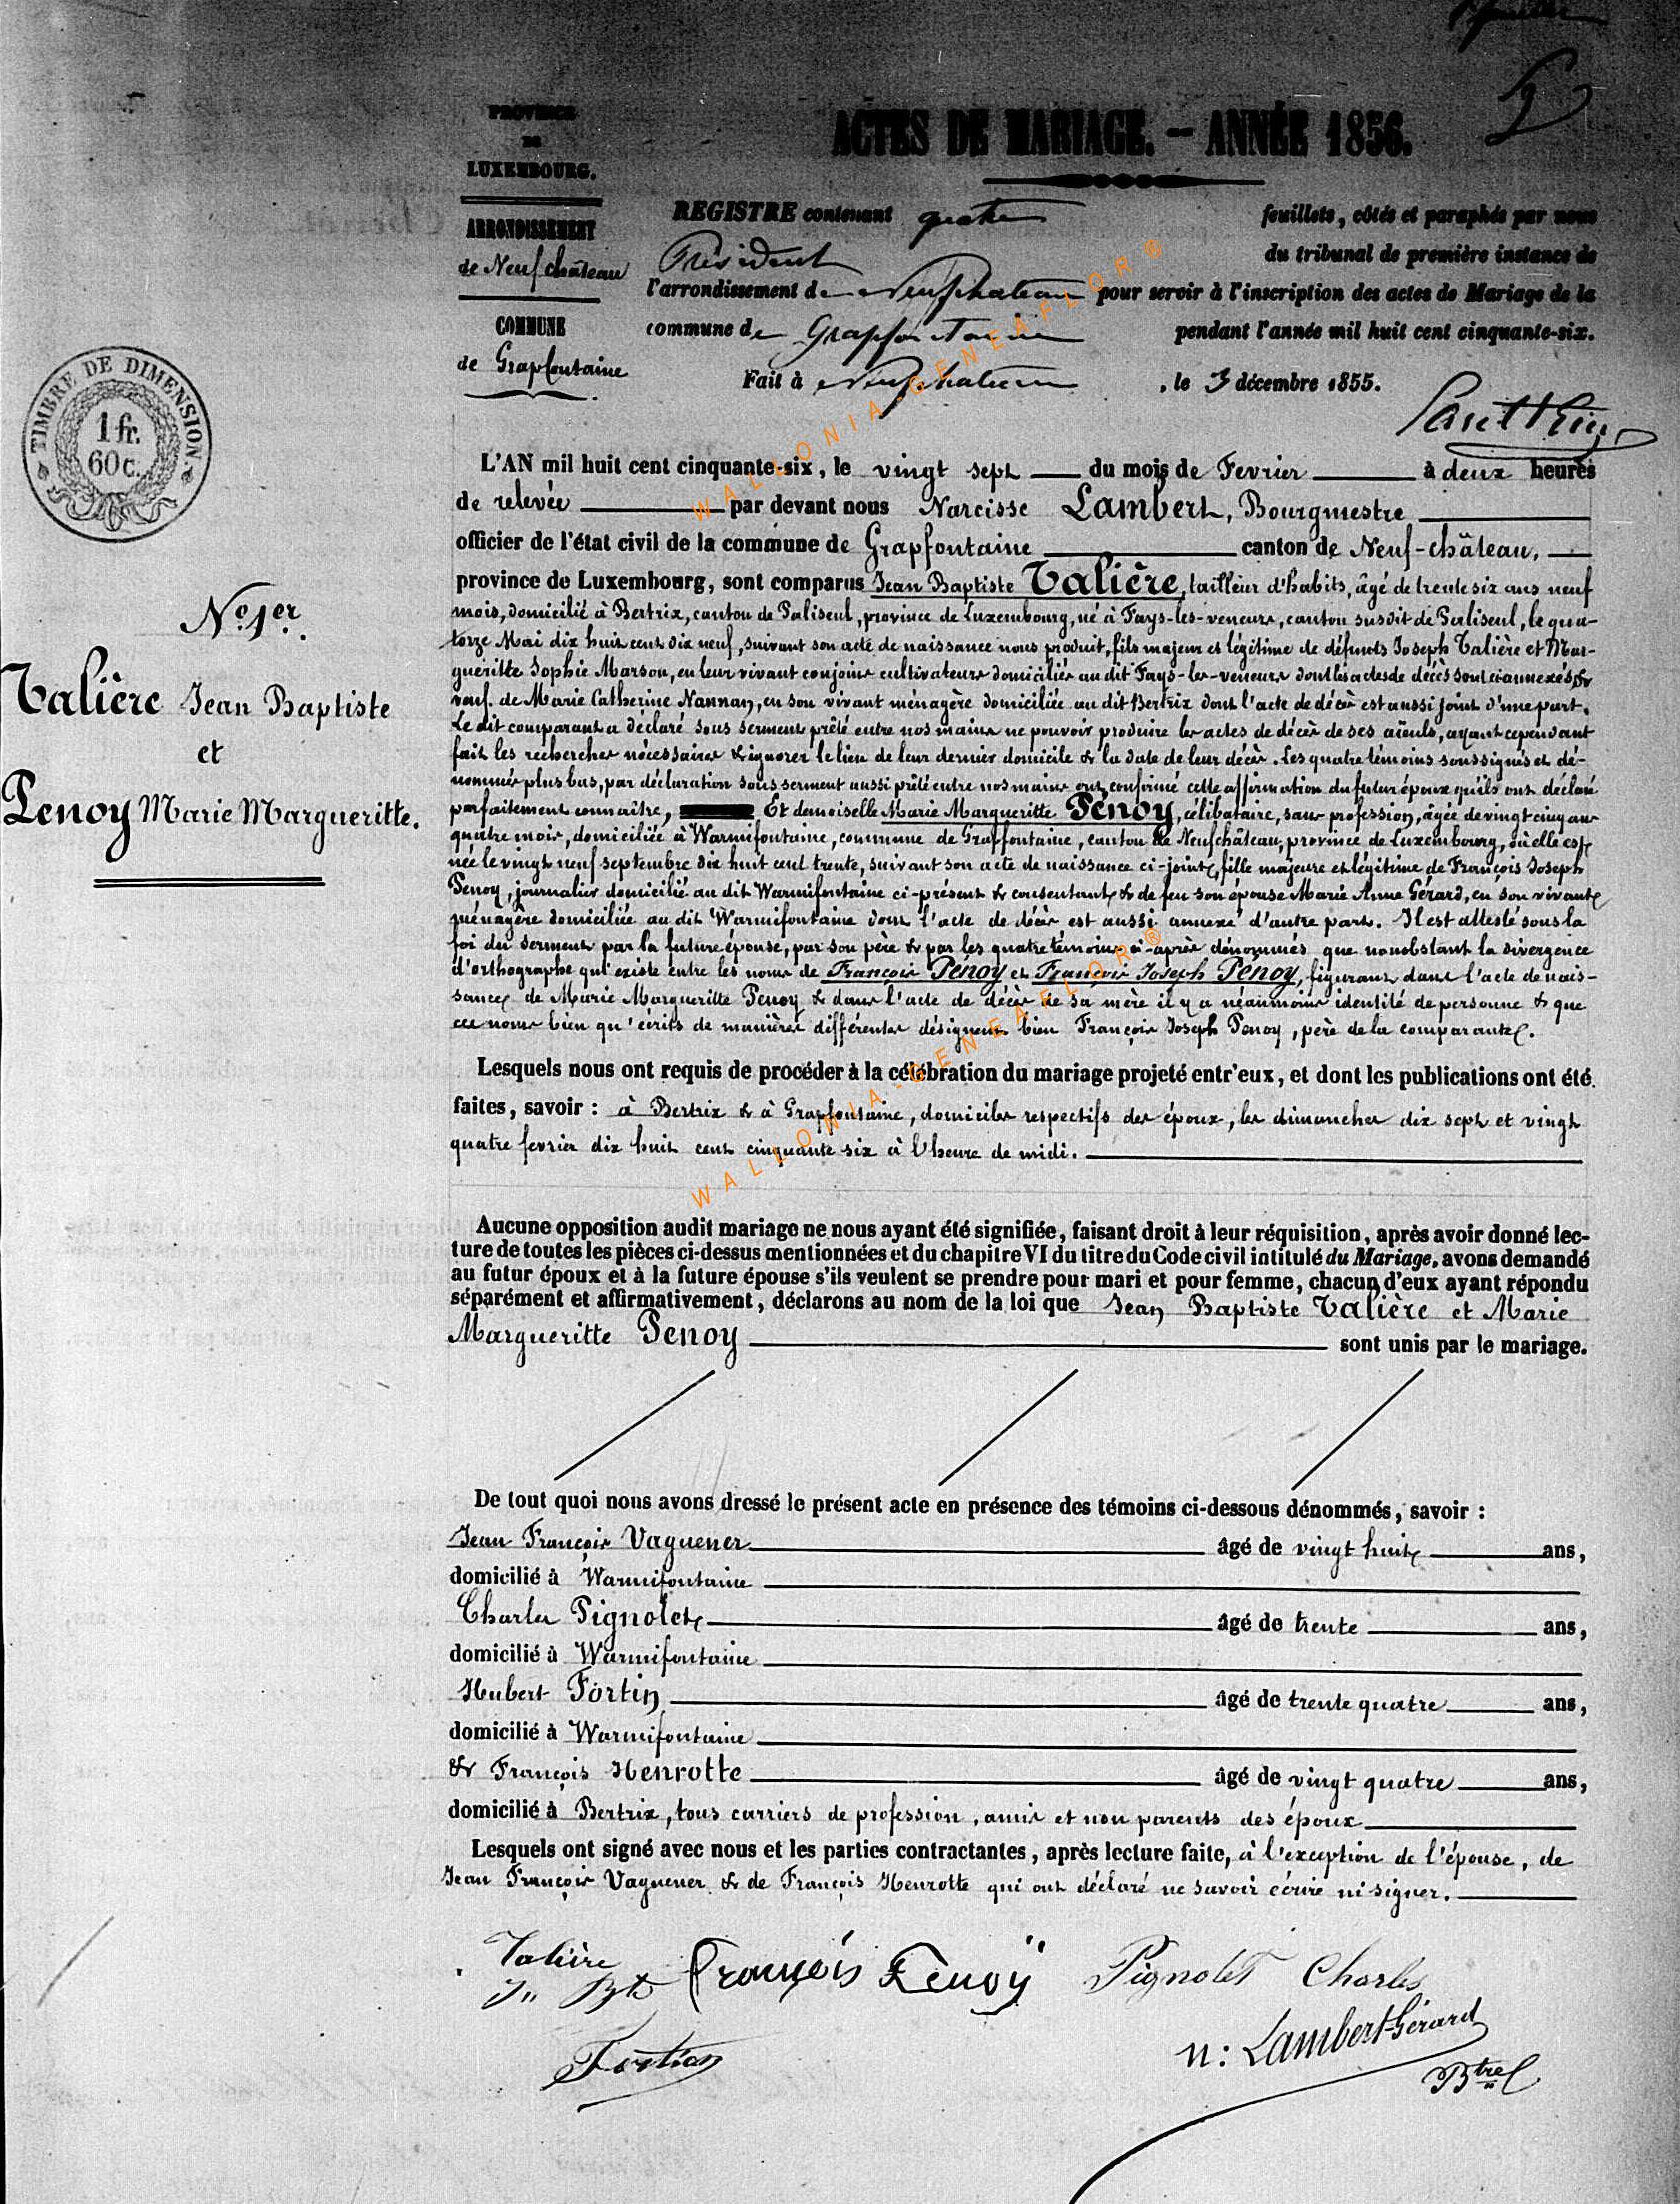 PROVINCE
DE
LUXEMBOURG.
ARRONDISSEMENT
de Neufchâteau
COMMUNE
de Grapfontaine
ACTES DE MARIAGE. — ANNÉE 1856.
REGISTRE contenant quatre feuillets, côtés et paraphés par nous
Président du tribunal de première instance de
l'arrondissement de Neufchateau pour servir à l'inscription des actes de Mariage de la
commune de Grapfontaine pendant l'année mil huit cent cinquante-six.
Fait à Neufchateau, le 3 décembre 1855.
TIMBRE DE DIMENSION
1 fr.
60 c.
No. 1er.
Talière Jean Baptiste
et
Penoy Marie Margueritte.
L'AN mil huit cent cinquante-six, le vingt sept du mois de Fevrier à deux heures
de relevée par devant nous Narcisse Lambert, Bourgmestre
officier de l'état civil de la commune de Grapfontaine canton de Neuf-château,
province de Luxembourg, sont comparus Jean Baptiste Talière, tailleur d'habits, âgé de trente six ans neuf
mois, domicilié à Bertrix, canton de Paliseul, province de Luxembourg, né à Fays-les-veneurs, canton susdit de Paliseul, le qua-
torze Mai dix huit cent dix neuf, suivant son acte de naissance nous produit, fils majeur et légitime de défunts Joseph Talière et Mar-
gueritte Sophie Marson, en leur vivant conjoints cultivateurs domiciliés au dit Fays-les-veneurs dont les actes de décès sont ci annexés &
veuf de Marie Catherine Nannan, en son vivant ménagère domiciliée au dit Bertrix dont l'acte de décès est aussi joint d'une part.
Le dit comparant a déclaré sous serment prêté entre nos mains ne pouvoir produire les actes de décès de ses aïeuls, ayant cependant
fait les recherches nécessaires & ignorer le lieu de leur dernier domicile & la date de leur décès. Les quatre témoins soussignés et dé-
nommés plus bas, par déclaration sous serment aussi prêté entre nos mains ont confirmé cette affirmation du futur époux qu'ils ont déclaré
parfaitement connaître, Et demoiselle Marie Margueritte Penoy, célibataire, sans profession, âgée de vingt cinq ans
quatre mois, domiciliée à Warmifontaine, commune de Grapfontaine, canton de Neufchâteau, province de Luxembourg, où elle est
née le vingt neuf septembre dix huit cent trente, suivant son acte de naissance ci-joint, fille majeure et légitime de François Joseph
Penoy, journalier domicilié au dit Warmifontaine ci-présent & consentant & de feu son épouse Marie Anne Gérard, en son vivant
ménagère domiciliée au dit Warmifontaine dont l'acte de décès est aussi annexé d'autre part. Il est attesté sous la
foi du serment par la future épouse, par son père & par les quatre témoins ci-après dénommés que nonobstant la divergence
d'orthographe qui existe entre les noms de François Pénoy et François Joseph Pénoy, figurant dans l'acte de nais-
sance de Marie Margueritte Penoy & dans l'acte de décès de sa mère il y a néanmoins identité de personne & que
ces noms bien qu'écrits de manières différentes désignent bien François Joseph Penoy, père de la comparante.
Lesquels nous ont requis de procéder à la célébration du mariage projeté entr'eux, et dont les publications ont été
faites, savoir : à Bertrix & à Grapfontaine, domiciles respectifs des époux, les dimanches dix sept et vingt
quatre fevrier dix huit cent cinquante six à l'heure de midi.
Aucune opposition audit mariage ne nous ayant été signifiée, faisant droit à leur réquisition, après avoir donné lec-
ture de toutes les pièces ci-dessus mentionnées et du chapitre VI du titre du Code civil intitulé du Mariage, avons demandé
au futur époux et à la future épouse s'ils veulent se prendre pour mari et pour femme, chacun d'eux ayant répondu
séparément et affirmativement, déclarons au nom de la loi que Jean Baptiste Talière et Marie
Margueritte Penoy sont unis par le mariage.
De tout quoi nous avons dressé le présent acte en présence des témoins ci-dessous dénommés, savoir :
Jean François Vaguener âgé de vingt huit ans,
domicilié à Warmifontaine
Charles Pignolet âgé de trente ans,
domicilié à Warmifontaine
Hubert Fortin âgé de trente quatre ans,
domicilié à Warmifontaine
& François Henrotte âgé de vingt quatre ans,
domicilié à Bertrix, tous carriers de profession, amis et non parents des époux
Lesquels ont signé avec nous et les parties contractantes, après lecture faite, à l'exception de l'épouse, de
Jean François Vaguener & de François Henrotte qui ont déclaré ne savoir écrire ni signer.
Talière
Jn Bte
François Penoÿ
Pignolet Charles
Fortin
N: Lambert-Gérard
Btre
WALLONIA-GENEAFLOR®
WALLONIA-GENEAFLOR®